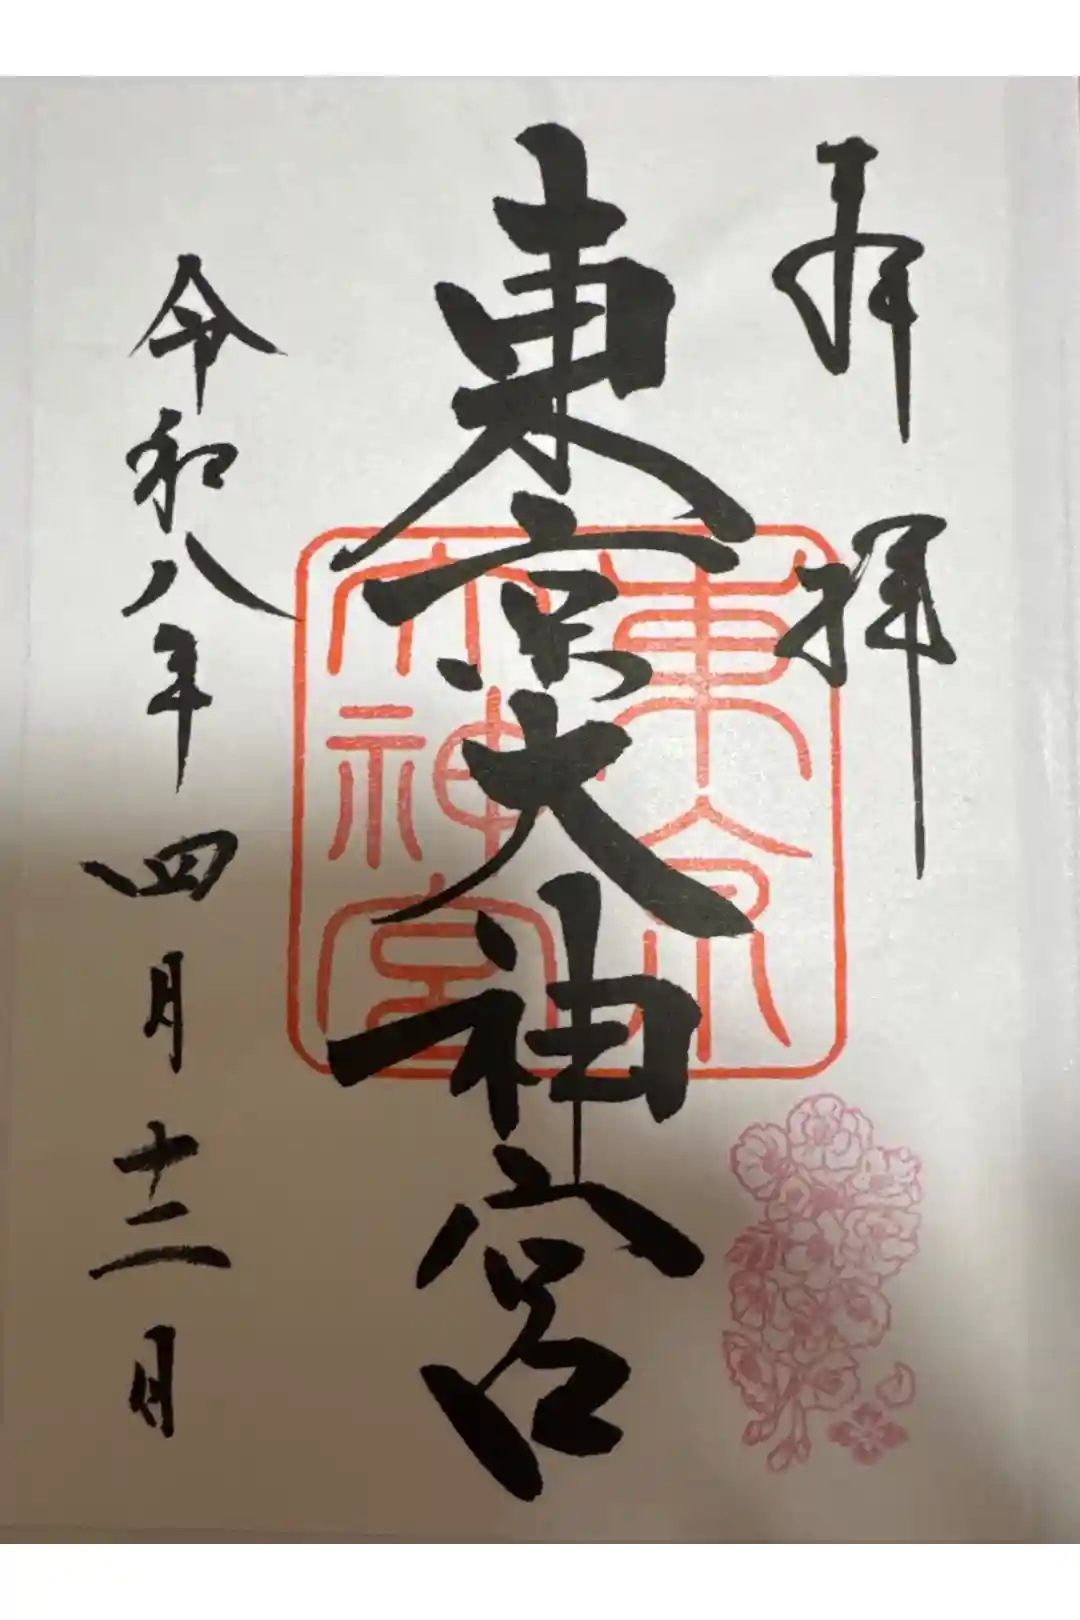 奉拝
東京大神宮
東京大神宮
令和八年四月十二日